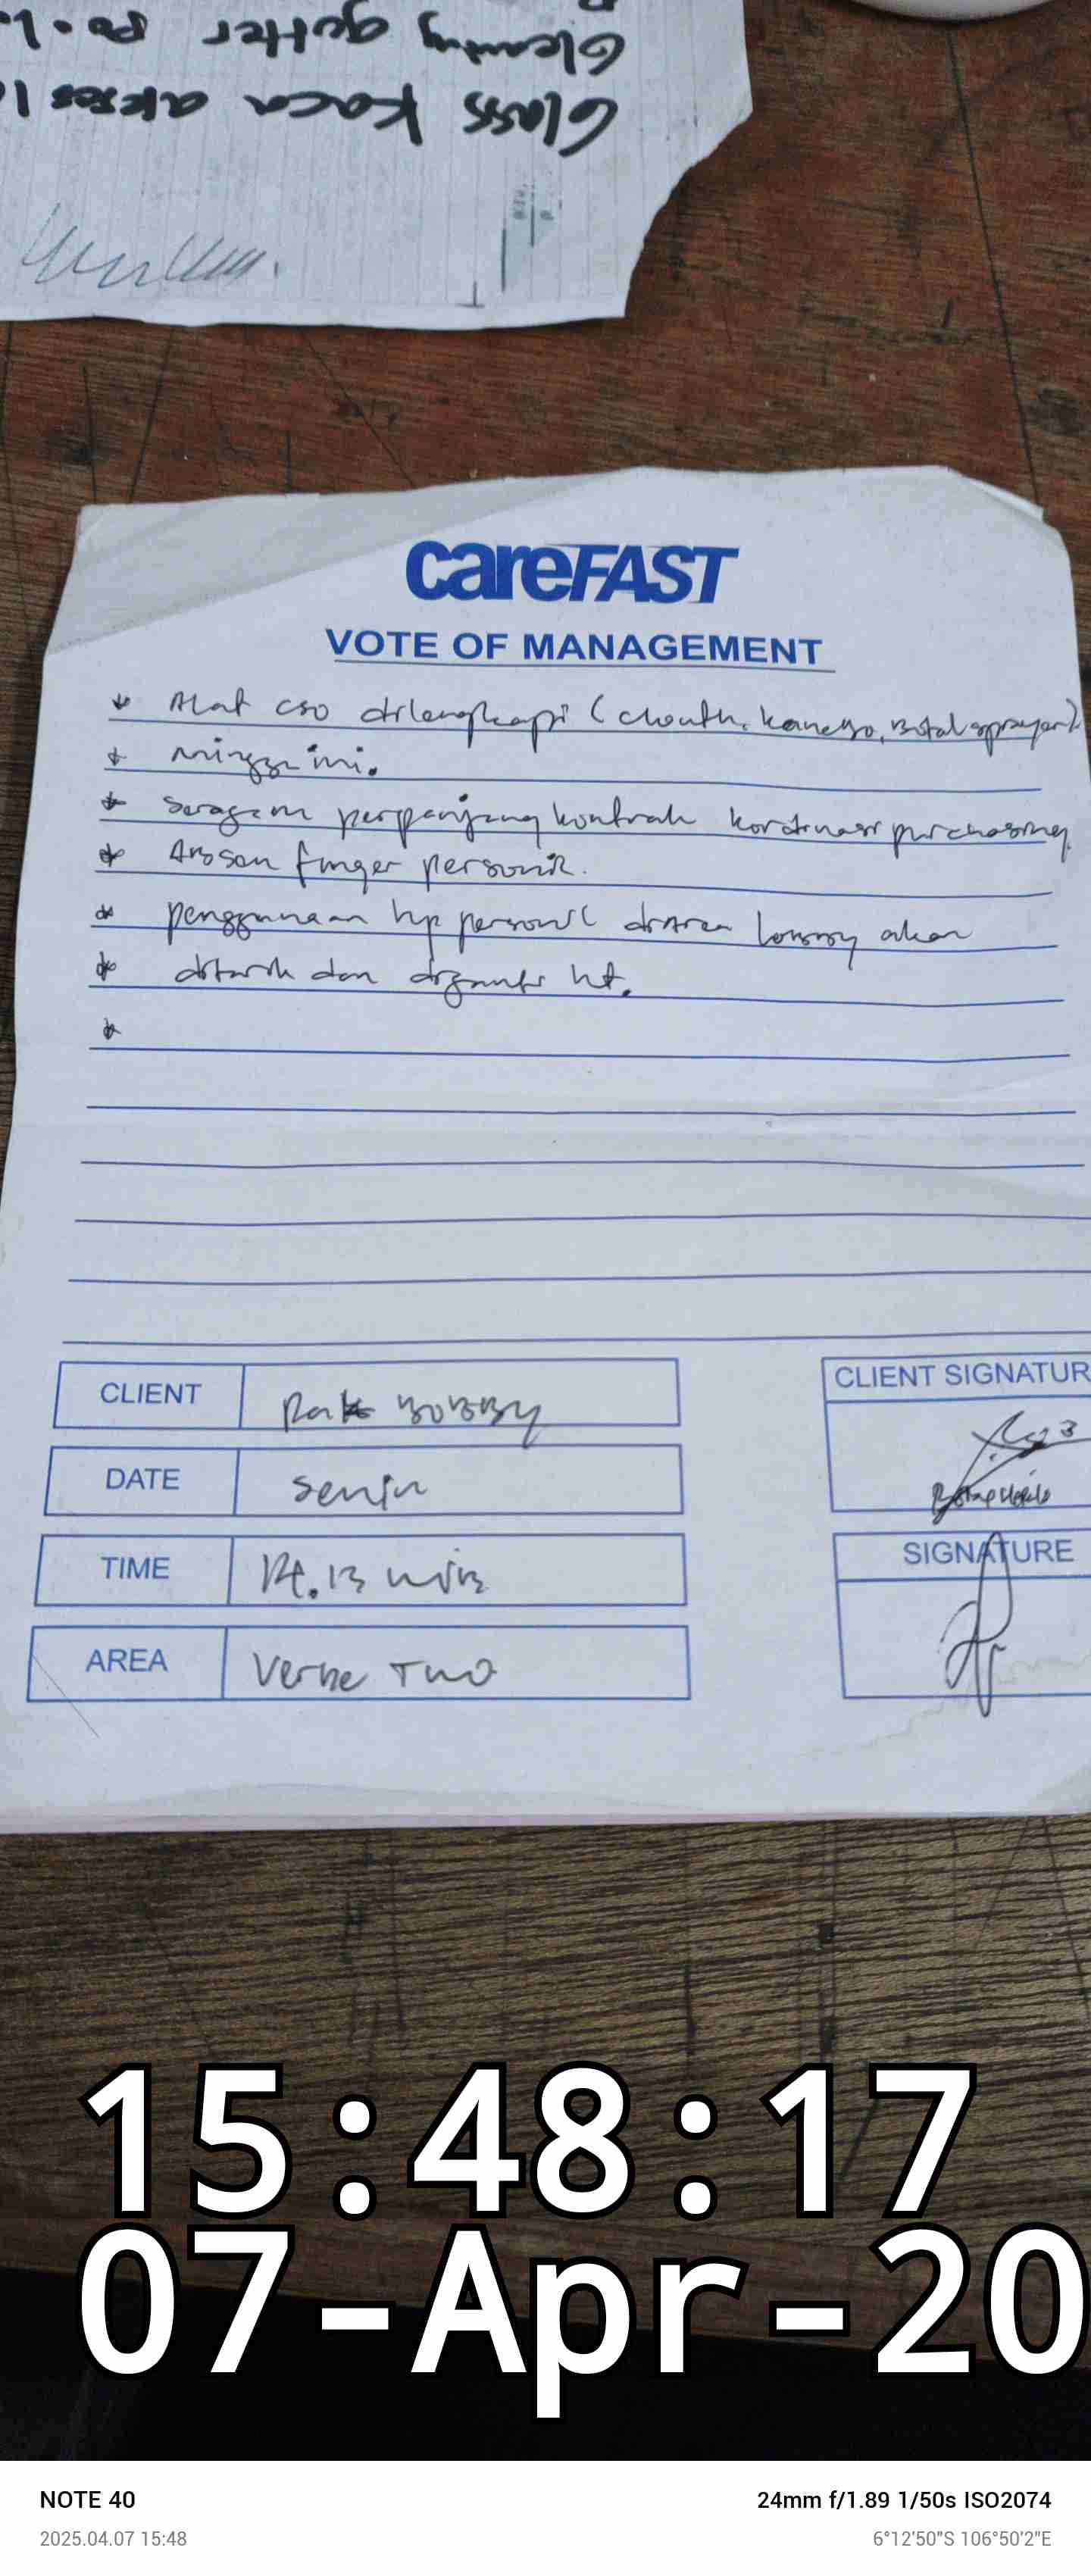 Glass kaca akses l
Cleaning gutter po.L
careFAST
VOTE OF MANAGEMENT
* Alat cso dilengkapi (chouth, kanebo, Botol sprayer)
* minggu ini.
* Seragam perpanjang kontrak kordinasi purchasing
* Absen finger personil.
* penggunaan hp personil diArea lobby akan
* ditarik dan diganti ht.
*
CLIENT Pak BOBBY
DATE Senin
TIME 14.13 WIB
AREA Verne Two
CLIENT SIGNATUR
SIGNATURE
15:48:17
07-Apr-20
NOTE 40
24mm f/1.89 1/50s ISO2074
2025.04.07 15:48
6°12'50"S 106°50'2"E